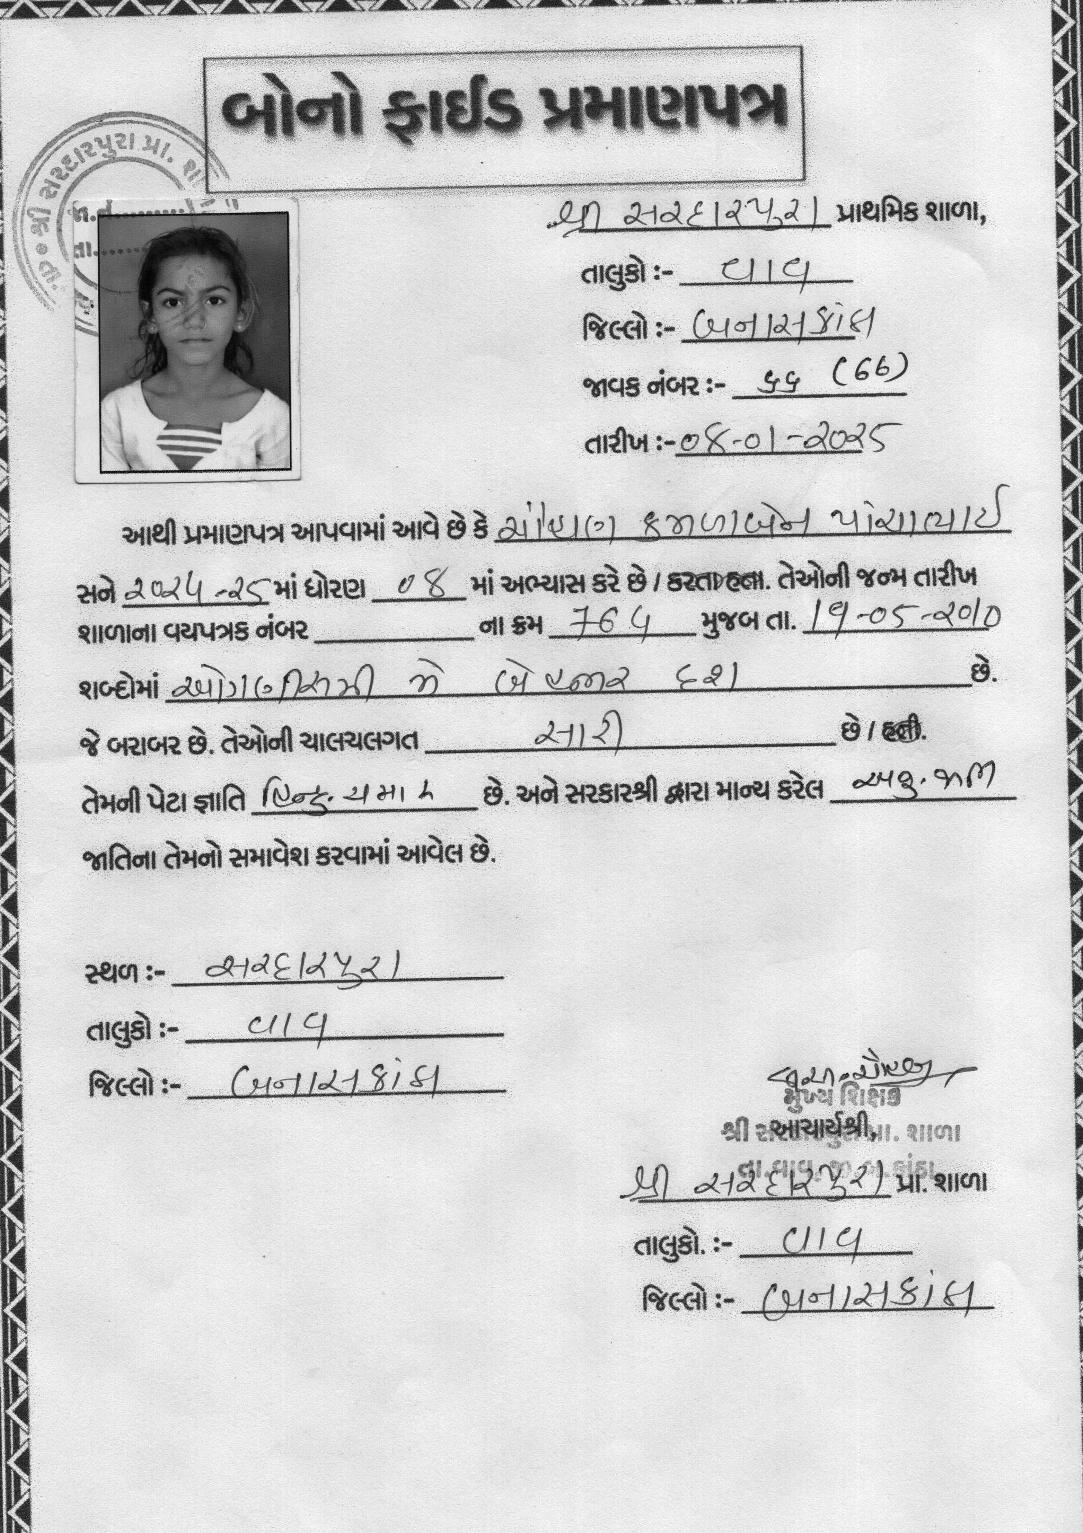 બોનો ફાઈડ પ્રમાણપત્ર
શ્રી સરદારપુરા પ્રા. શા
શ્રી સરદારપુરા પ્રાથમિક શાળા,
તાલુકો :- વાવ
જિલ્લો :- બનાસકાંઠા
જાવક નંબર :- ૬૬ (66)
તારીખ :- ૦૪-૦૧-૨૦૨૫
આથી પ્રમાણપત્ર આપવામાં આવે છે કે ચૌહાણ કમળાબેન પાંચાભાઈ
સને ૨૦૨૪-૨૫ માં ધોરણ ૦૪ માં અભ્યાસ કરે છે / કરતા હતા. તેઓની જન્મ તારીખ
શાળાના વયપત્રક નંબર ના ક્રમ 764 મુજબ તા. 19-05-2010
શબ્દોમાં ઓગણીસમી મે બે હજાર દશ છે.
જે બરાબર છે. તેઓની ચાલચલગત સારી છે / હતી.
તેમની પેટા જ્ઞાતિ હિન્દુ. ચમાર છે. અને સરકારશ્રી દ્વારા માન્ય કરેલ અનુ. જાતિ
જાતિના તેમનો સમાવેશ કરવામાં આવેલ છે.
સ્થળ :- સરદારપુરા
તાલુકો :- વાવ
જિલ્લો :- બનાસકાંઠા
મુખ્ય શિક્ષક
આચાર્યશ્રી,
શ્રી સરદારપુરા પ્રા. શાળા
તા.વાવ. જી.બ.કાંઠા.
શ્રી સરદારપુરા પ્રા. શાળા
તાલુકો. :- વાવ
જિલ્લો :- બનાસકાંઠા